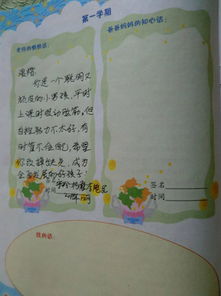 第一学期
老师的悄悄话：
爸爸妈妈的知心话：
你是一个聪明又
的小男孩，平时
上课时很动脑筋，但
自控能力不太好，有
时管不住自己，希望
你改掉缺点，成为
全面发展的好孩子！
签名
时间
签名
时间
我的话：